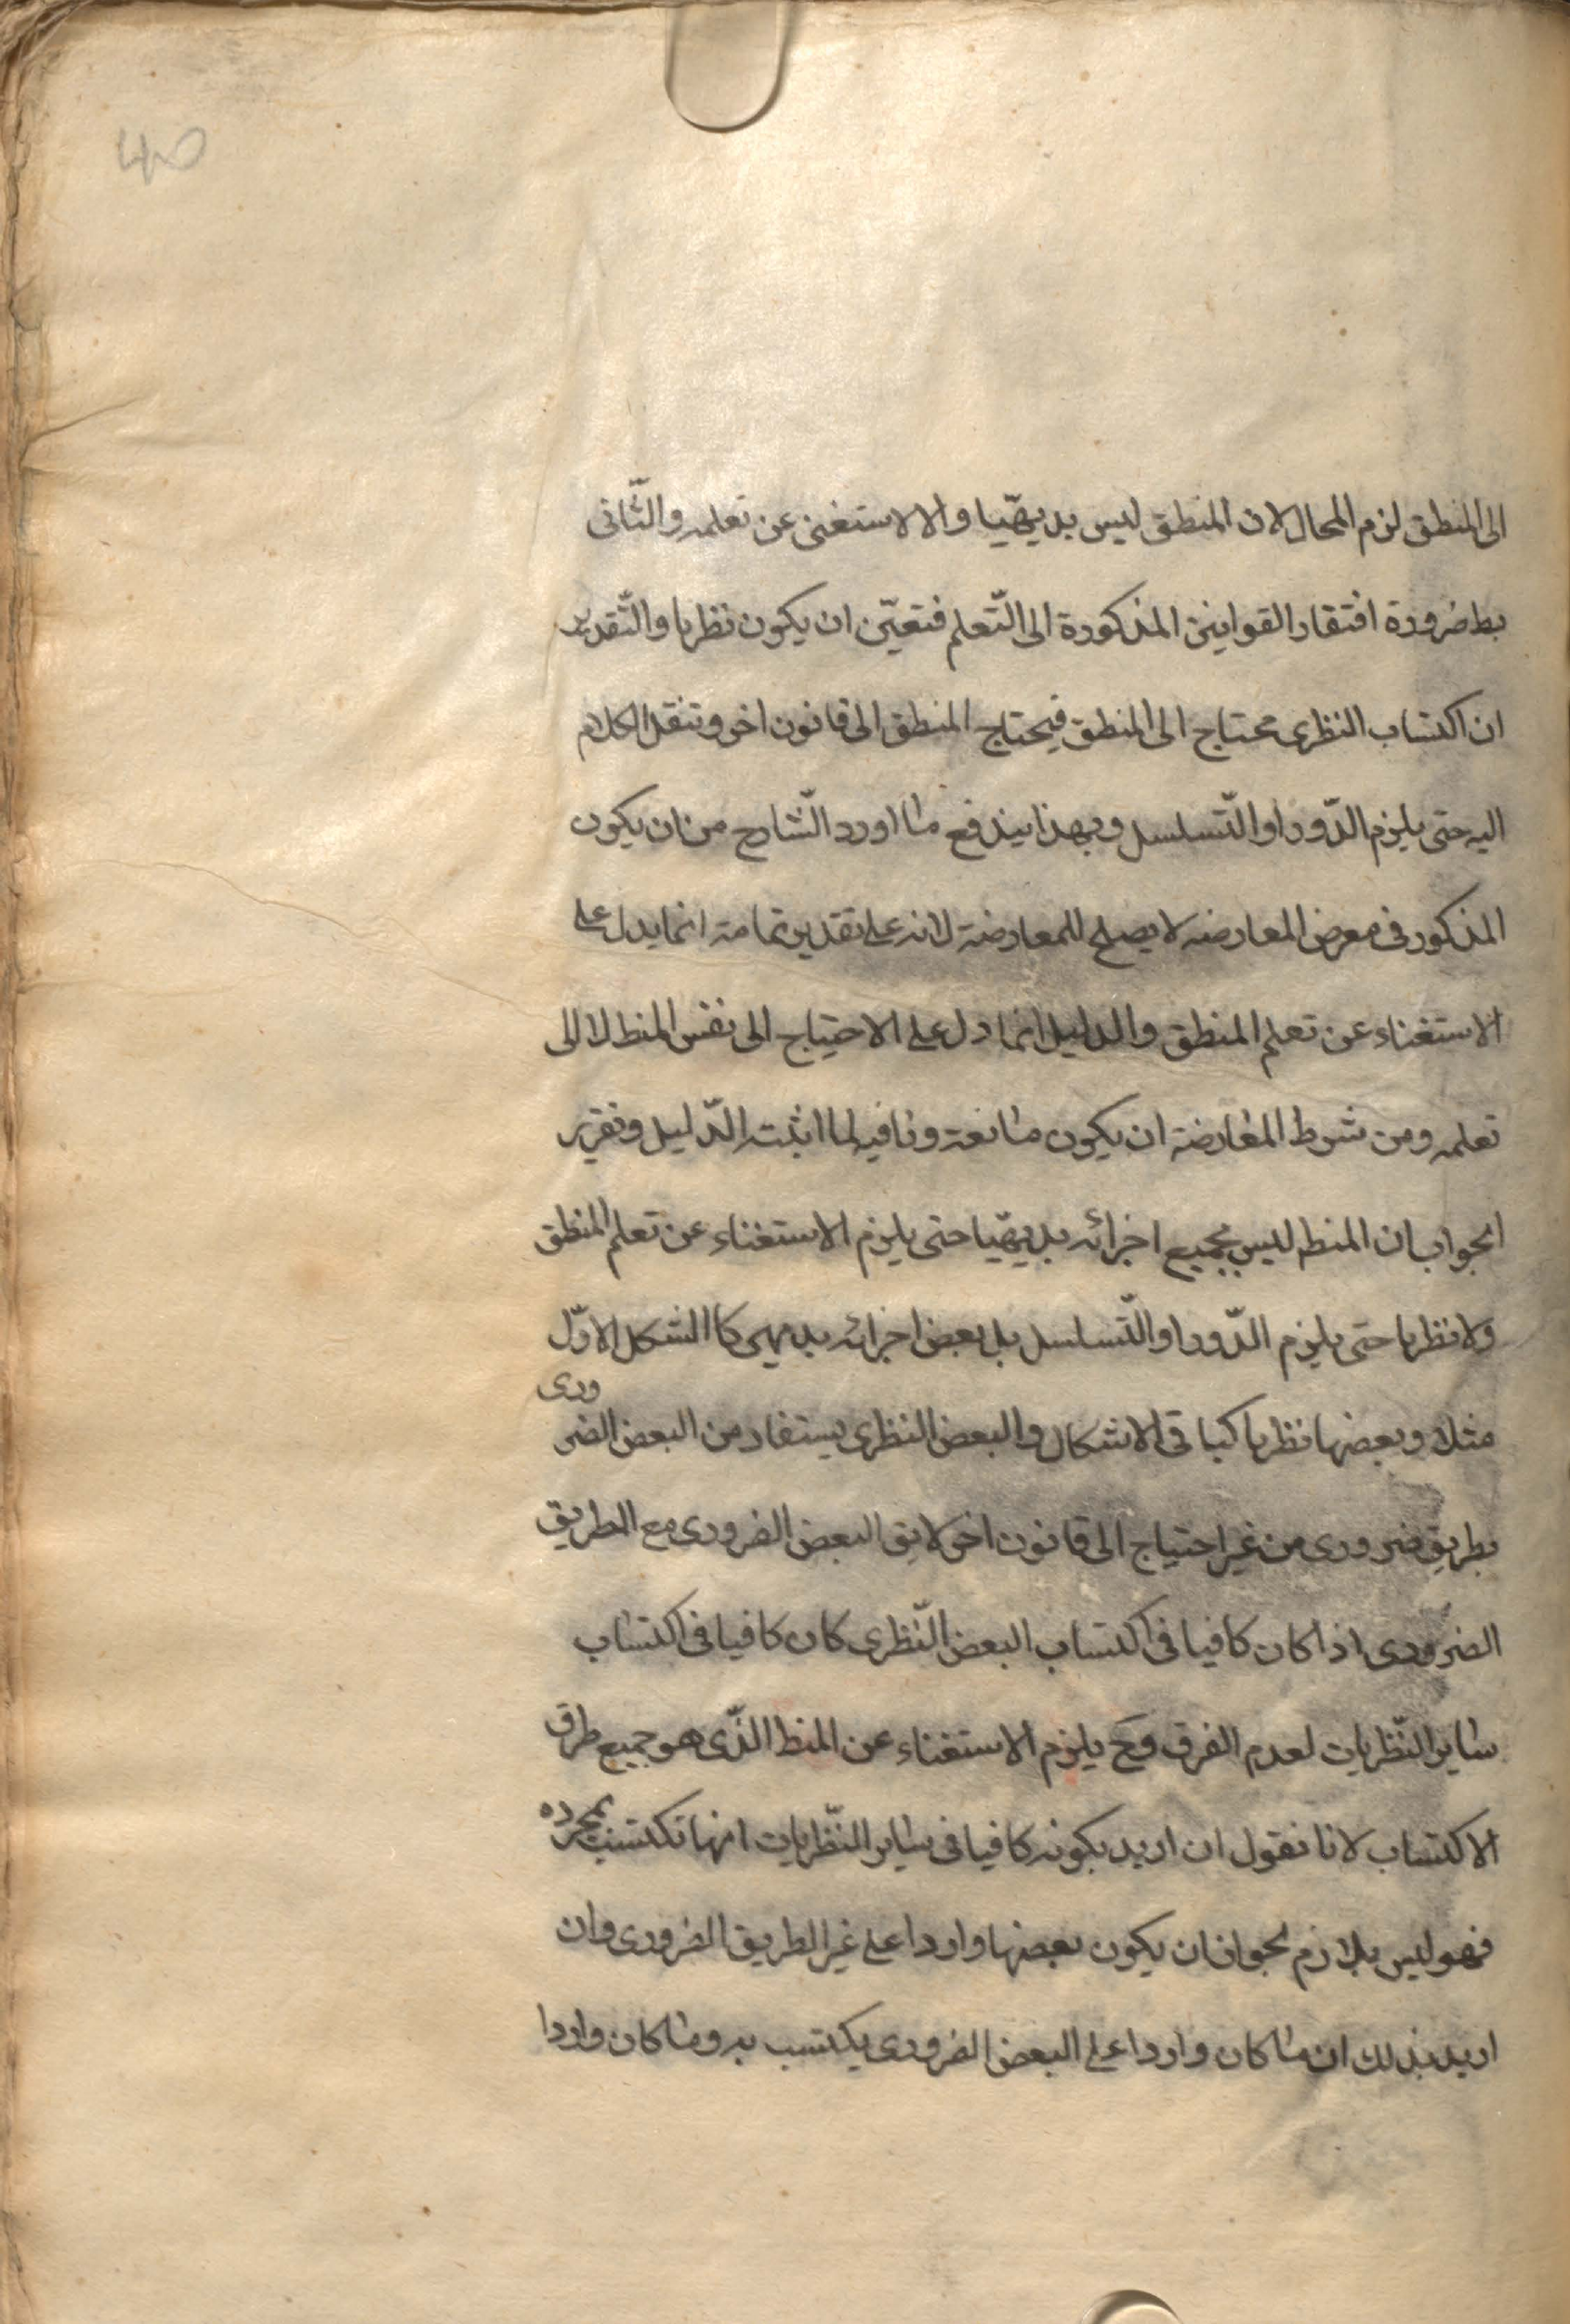 40
الى المنطق لزم المحال لان المنطق ليس بديهيّا والا لاستغنى عن تعلمه والثّانى
بط ضرورة افتقار القوانين المذكورة الى التّعلم فتعيّن ان يكون نظريا والتّقدير
ان اكتساب النظرى محتاج الى المنطق فيحتاج المنطق الى قانون اخر وتنقل الكلام
اليه حتى يلزم الدّور او التّسلسل وبهذا يندفع ما اورد الشّارح من ان يكون
المذكور فى معرض المعارضه لا يصلح للمعارضة لانه على تقدير تمامته انما يدل على
الاستغناء عن تعلم المنطق والدليل انما دل على الاحتياج الى نفس المنط لا الى
تعلمه ومن شرط المعارضة ان يكون مانعة ونافيه لما اثبته الدّليل وتقرير
الجواب ان المنط ليس بجميع اجزائه بديهيّا حتى يلزم الاستغناء عن تعلم المنطق
ولا نظريا حتى يلزم الدّور او التّسلسل بل بعض اجزائه بديهى كا الشكل الاوّل
مثلا وبعضها نظريا كباقى الاشكال والبعض النظرى يستفاد من البعض الضرورى
بطريق ضرورى من غير احتياج الى قانون اخر لا يق البعض الضرورى مع الطريق
الضرورى اذا كان كافيا فى اكتساب البعض النّظرى كان كافيا فى اكتساب
ساير النّظريات لعدم الفرق وح يلزم الاستغناء عن المنط الذّى هو جميع طرق
الاكتساب لانا نقول ان اريد بكونه كافيا فى ساير النّظريات انها تكتسب بمجرده
فهو ليس بلازم لجواز ان يكون بعضها واردا على غير الطريق الضرورى وان
اريد بذلك ان ما كان واردا على البعض الضرورى يكتسب به وما كان واردا